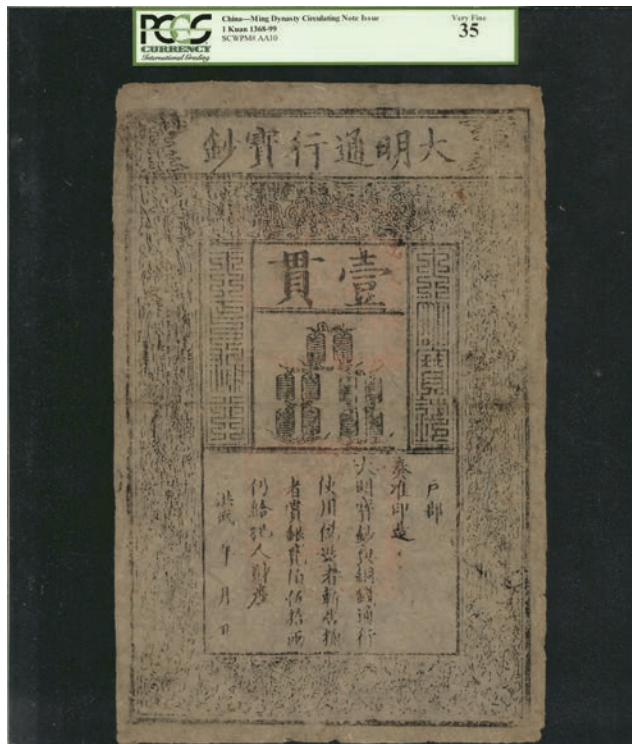 PCGS
CURRENCY
International Grading
China—Ming Dynasty Circulating Note Issue
1 Kuan 1368-99
SCWPM# AA10
Very Fine
35
大明通行寶鈔
壹貫
戶部
奏准印造
大明寶鈔與銅錢通行
使用偽造者斬告捕
者賞銀貳伯伍拾兩
仍給犯人財產
洪武 年 月 日